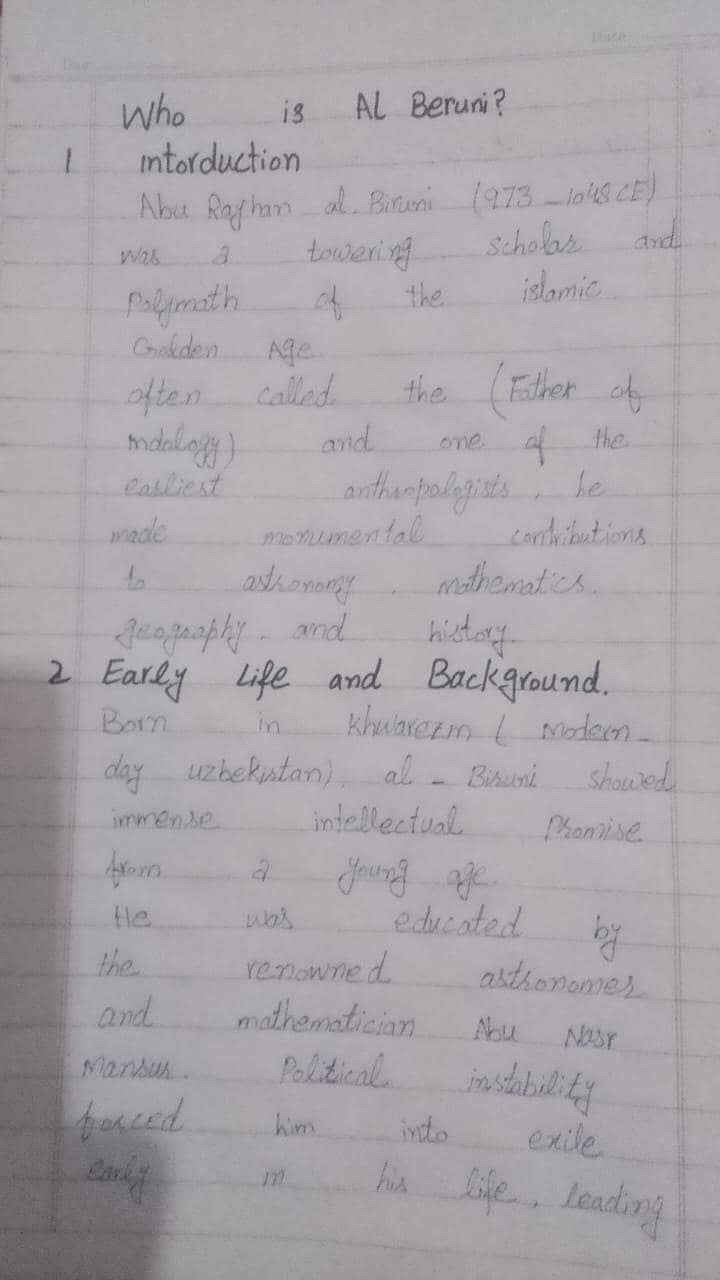 Who is AL Beruni?
1 intorduction
Abu Rayhan al. Biruni (973 - 1048 CE)
was a towering scholar and
Polymath of the islamic
Golden Age
often called the (Father of
indology) and one of the
earliest anthropologists, he
made monumental contributions
to astronomy. mathematics.
geography. and history.
2 Early Life and Background.
Born in Khwarezm ( Modern-
day uzbekistan), al - Biruni showed
immense intellectual Promise
from a young age.
He was educated by
the renowned astronomer
and mathematician Abu Nasr
Mansur. Political instability
forced him into exile
early in his life, leading